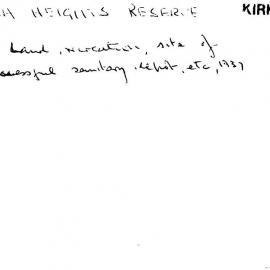 H HEIGHTS RESERVE KIRK
Land, recreation, site of
cessful sanitary depot, etc, 1937